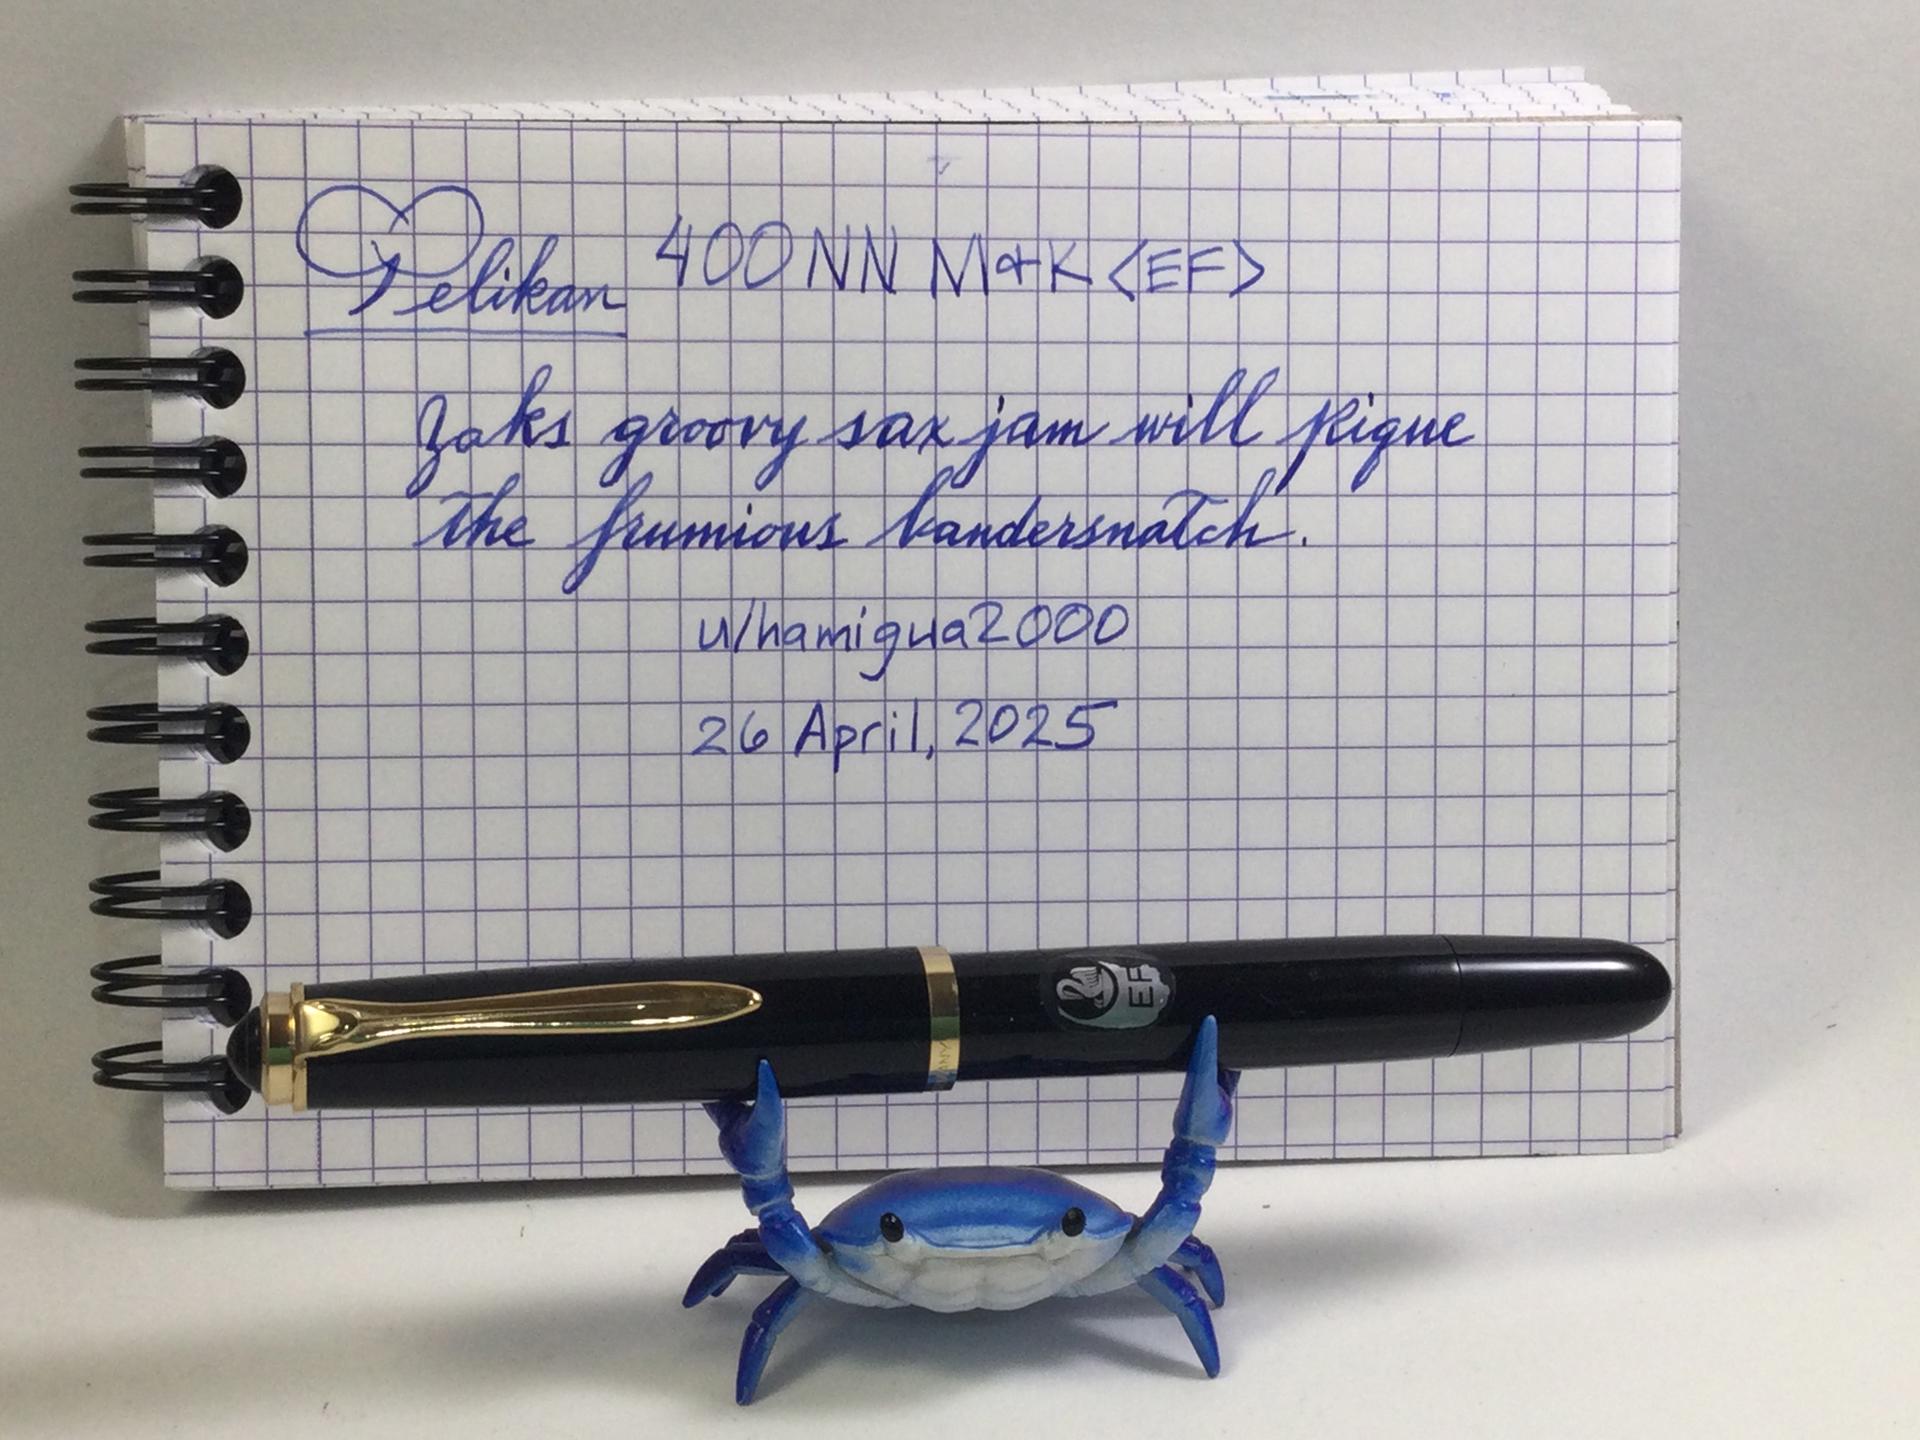 Pelikan 400NN M+K <EF>
Zaks groovy sax jam will pique
the frumious bandersnatch.
u/hamigua2000
26 April, 2025
EF
ANY